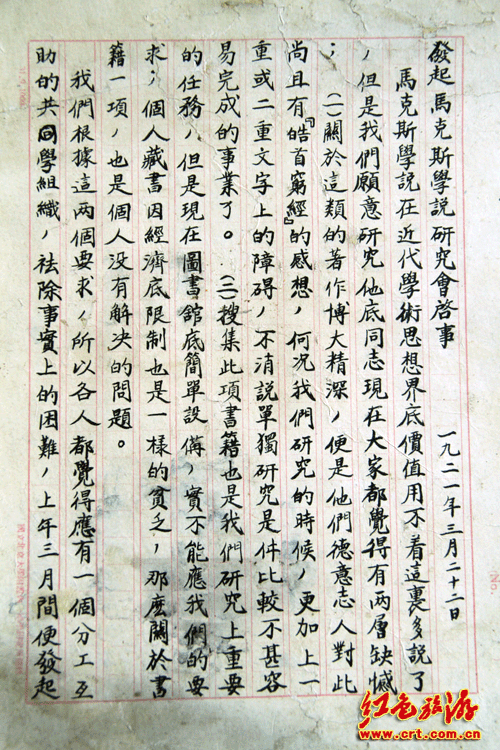 發起馬克斯學説研究會啓事　一九二一年三月二十二日
馬克斯學説在近代學術思想界底價值用不着這裏多説了
，但是我們願意研究他底同志現在大家都覺得有两層缺憾
；（一）關於這類的著作博大精深，便是他們德意志人對此
尚且有『皓首窮經』的感想，何況我們研究的時候，更加上一
重或二重文字上的障碍，不消説單獨研究是件比較不甚容
易完成的事業了。（二）搜集此項書籍也是我們研究上重要
的任務，但是現在圖書館底簡單設備，實不能應我們的要
求；個人藏書因經濟底限制也是一樣的貧乏，那麽關於書
籍一項，也是個人没有解决的問題。
我們根據這两個要求，所以各人都覺得應有一個分工互
助的共同學組織，祛除事實上的困難，上年三月間便發起
No.
红色旅游
www.crt.com.cn